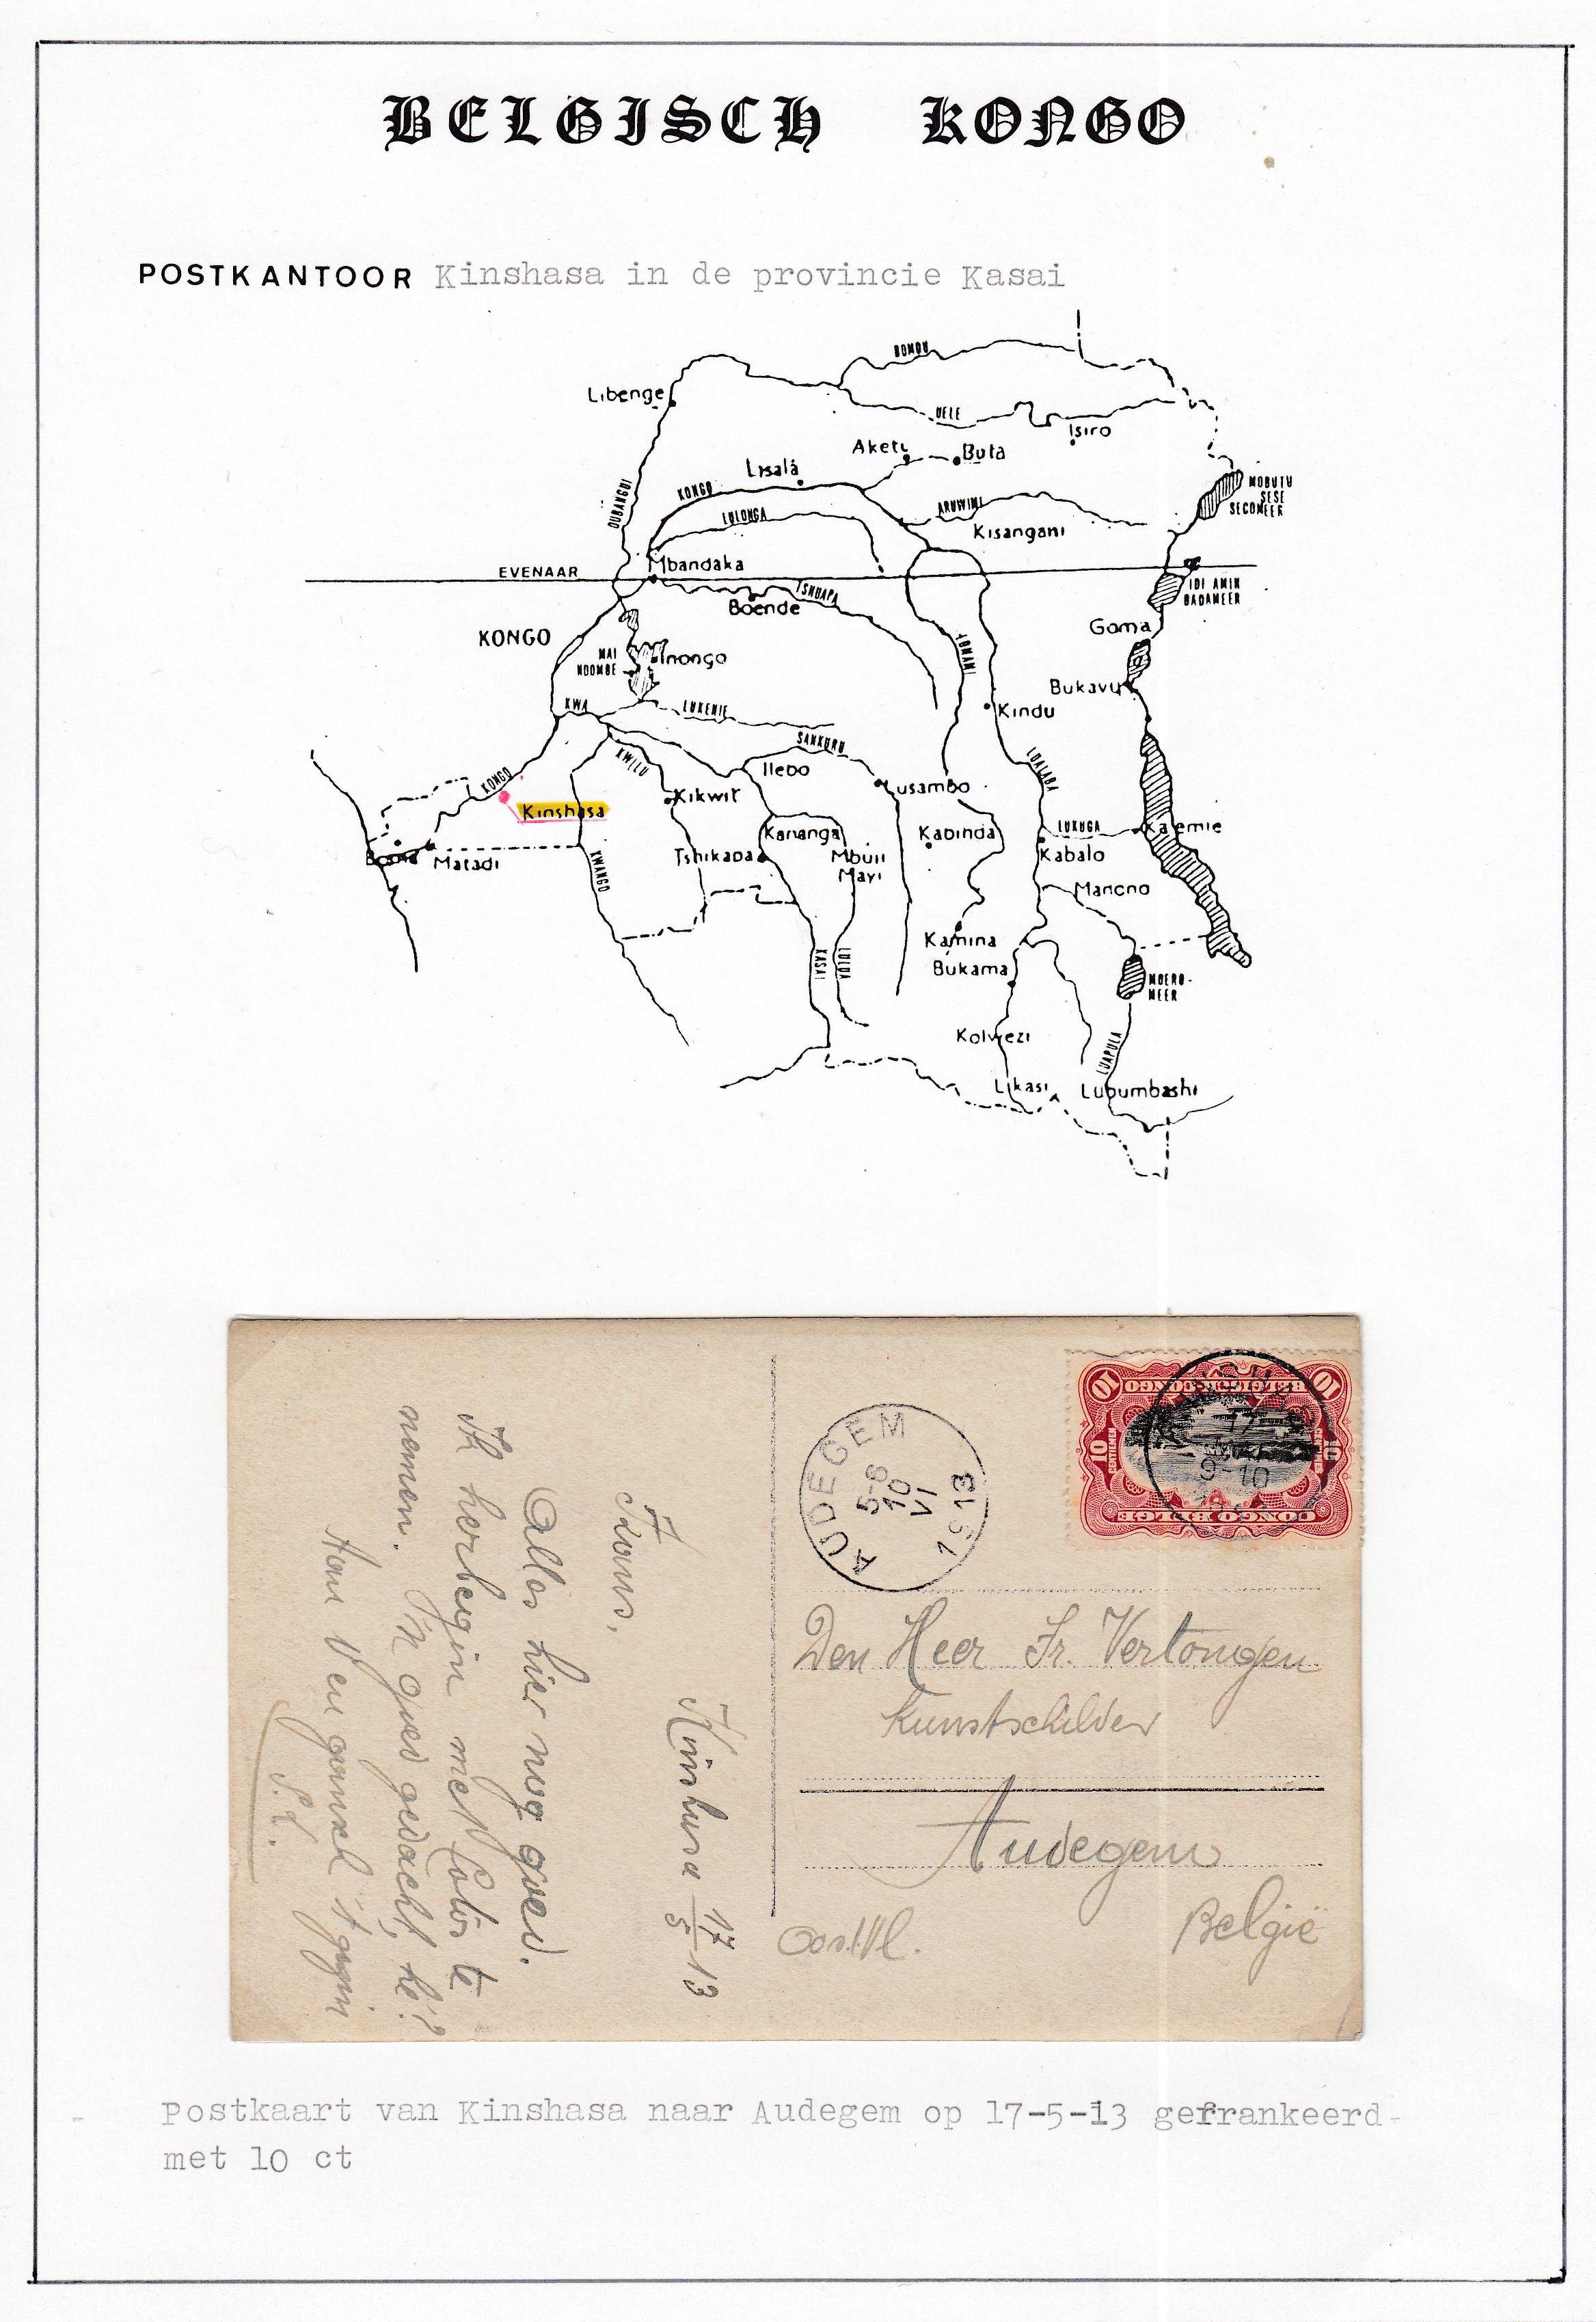 BELGISCH KONGO
POSTKANTOOR Kinshasa in de provincie Kasai
BOMU
Libenge
UELE
Isiro
Aketi
Buta
Lisala
MOBUTU
SESE
SECOMEER
OUBANGUI
KONGO
LULONGA
ARUWIMI
Kisangani
EVENAAR
Mbandaka
TSHUAPA
Boende
IDI AMIN
DADAMEER
KONGO
Goma
MAI
NDOMBE
Inongo
LOMANI
Bukavu
KWA
LUKENIE
Kindu
SANKURU
KWILU
Ilebo
LUALABA
KONGO
Kinshasa
Kikwit
Lusambo
Kananga
Kabinda
LUKUGA
Kalemie
Boma
Matadi
KWANGO
Tshikapa
Mbuji
Mayi
Kabalo
Manono
Kamina
KASAI
LULUA
Bukama
MOERO-
MEER
Kolwezi
LUAPULA
Likasi
Lubumbashi
10 BELGISCH CONGO 10
10
CENTIEMEN
CONGO BELGE
17
9-10
AUDEGEM
5-6
10
VI
1913
Den Heer Fr. Vertongen
Kunstschilder
Audegem
Oost Vl.
België
Kinshasa 17/5 13
Frans,
Alles hier nog goed.
Ik herbegin met fotos te
nemen. 'n goed gedacht, hé?
Aan U en gansch 't gezin
Postkaart van Kinshasa naar Audegem op 17-5-13 gefrankeerd-
met 10 ct